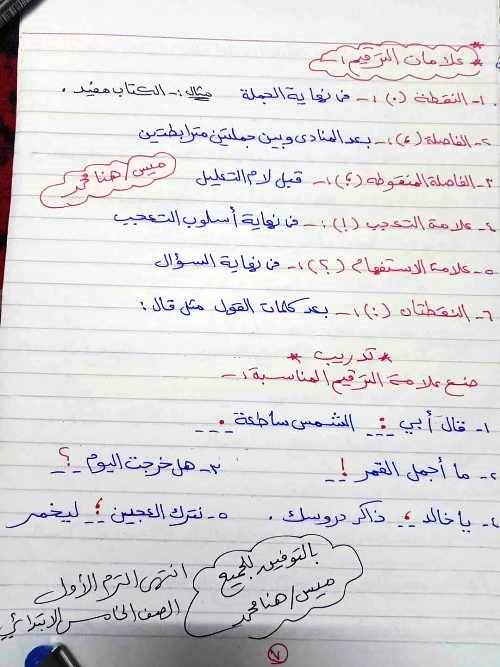 * علامات الترقيم :ـ *
١- النقطة (.) :ـ فى نهاية الجملة مثال :ـ الكتاب مفيد .
٢- الفاصلة (،) :ـ بعد المنادى وبين جملتين مترابطتين
٣- الفاصلة المنقوطة (؛) :ـ قبل لام التعليل
ميس / هنا محمد
٤- علامة التعجب (!) :ـ فى نهاية أسلوب التعجب
٥- علامة الاستفهام (؟) :ـ فى نهاية السؤال
٦- النقطتان (:) :ـ بعد كلمات القول مثل قال :
* تدريب *
ضع علامة الترقيم المناسبة :ـ
١- قال أبي : الشمس ساطعة .
٢- ما أجمل القمر ! ٣- هل خرجت اليوم ؟
٤- يا خالد ، ذاكر دروسك . ٥- نترك العجين ؛ ليخمر
بالتوفيق للجميع
ميس / هنا محمد
انتهى الترم الأول
الصف الخامس الابتدائي
٧